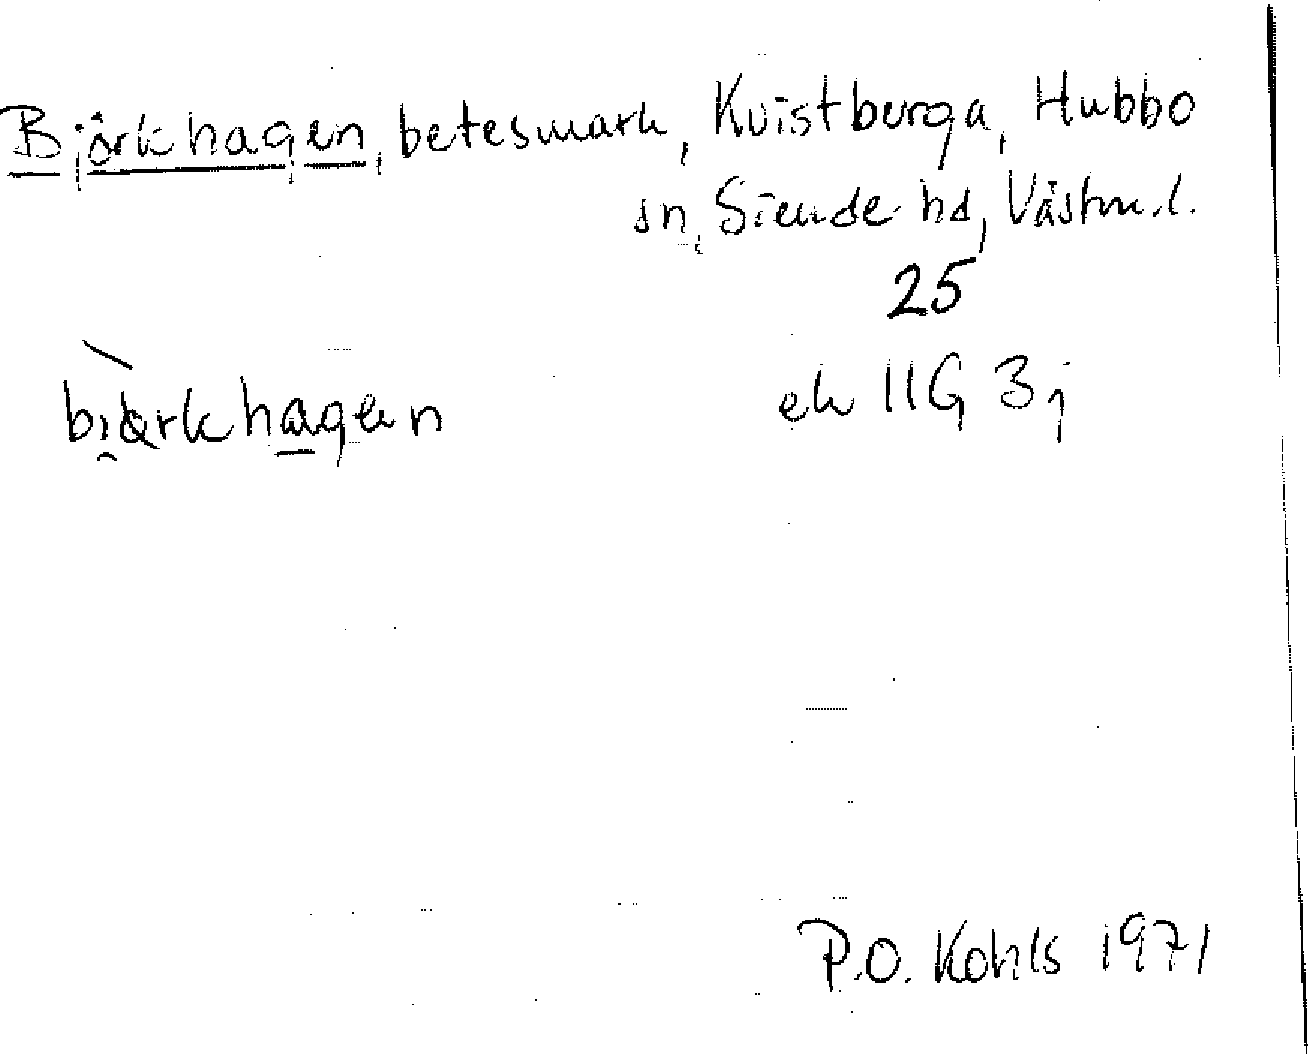 Björkhagen, betesmark, Kvistberga, Hubbo
sn, Siende hd, Västm.l.
25
bjö̀rkhagen
ek 11G 3j
P.O. Kohls 1971